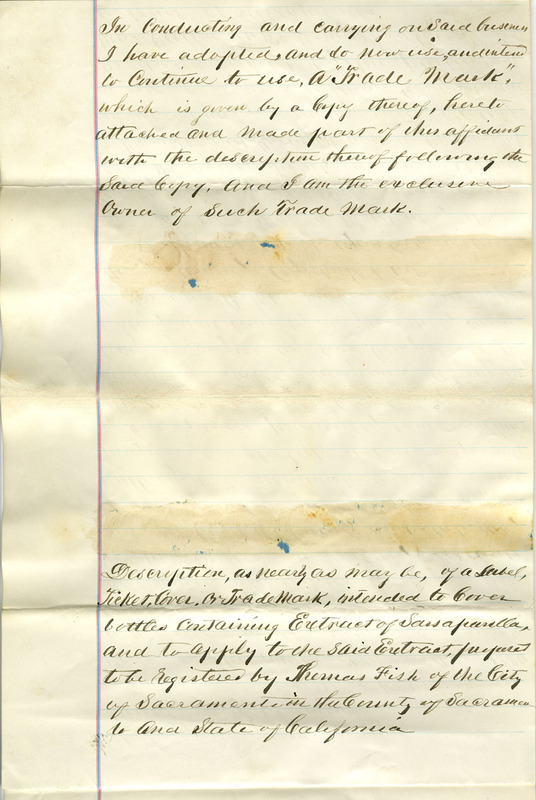 In Conducting and carrying on Said business
I have adopted, and do now use, and intend
to Continue to use, A "Trade Mark",
which is given by a Copy thereof, hereto
attached and Made part of this affidavit
with the description thereof following the
Said Copy. And I am the exclusive
Owner of Such Trade Mark.
Description, as nearly as may be, of a Label,
Ticket, Cover, Or Trade Mark, intended to Cover
bottles Containing Extract of Sarsaparilla,
and to apply to the Said Extract, prepared
to be Registered by Thomas Fish of the City
of Sacramento in the County of Sacramen
to And State of California